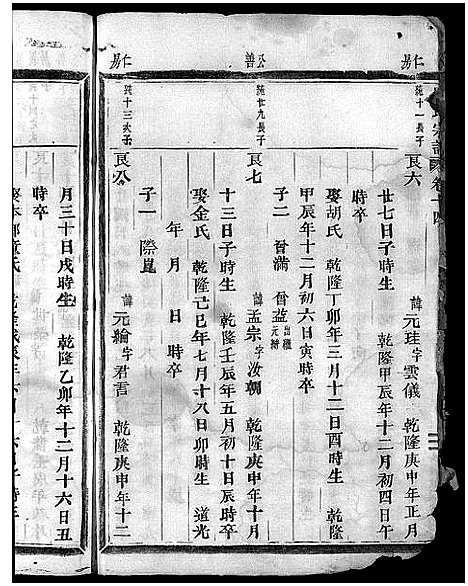 氏宗譜 卷十四
仁易
純十一長子
艮六
諱元珪字雲儀 乾隆庚申年正月
廿七日子時生 乾隆甲辰年十二月初四日午
時卒
娶胡氏 乾隆丁卯年三月十二日酉時生 乾隆
甲辰年十二月初六日寅時卒
子二 晉滿 晉益 出繼元繪
公善
純廿九長子
艮七
諱孟宗字汝朝 乾隆庚申年十月
十三日子時生 乾隆壬辰年五月初十日辰時卒
娶金氏 乾隆己巳年七月十八日卯時生 道光
年 月 日 時卒
子一 際崑
仁易
純十三次子
艮八
諱元繪字君言 乾隆庚申年十二
月三十日戌時生 乾隆乙卯年十二月十六日丑
時卒